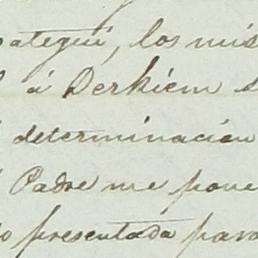 pategui, los mis
á Derkiem s
determinacion
Padre me pone
o presentada para